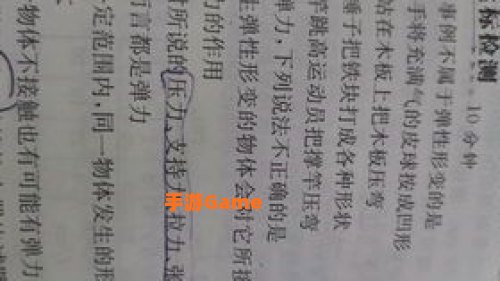 标检测 10分钟
事例不属于弹性形变的是
手将充满气的皮球按成凹形
站在木板上把木板压弯
锤子把铁块打成各种形状
竿跳高运动员把撑竿压弯
弹力,下列说法不正确的是
生弹性形变的物体会对它所接
力的作用
所说的压力、支持 拉力、张
言都是弹力
定范围内,同一物体发生的形
物体不接触也有可能有弹力
手游Game